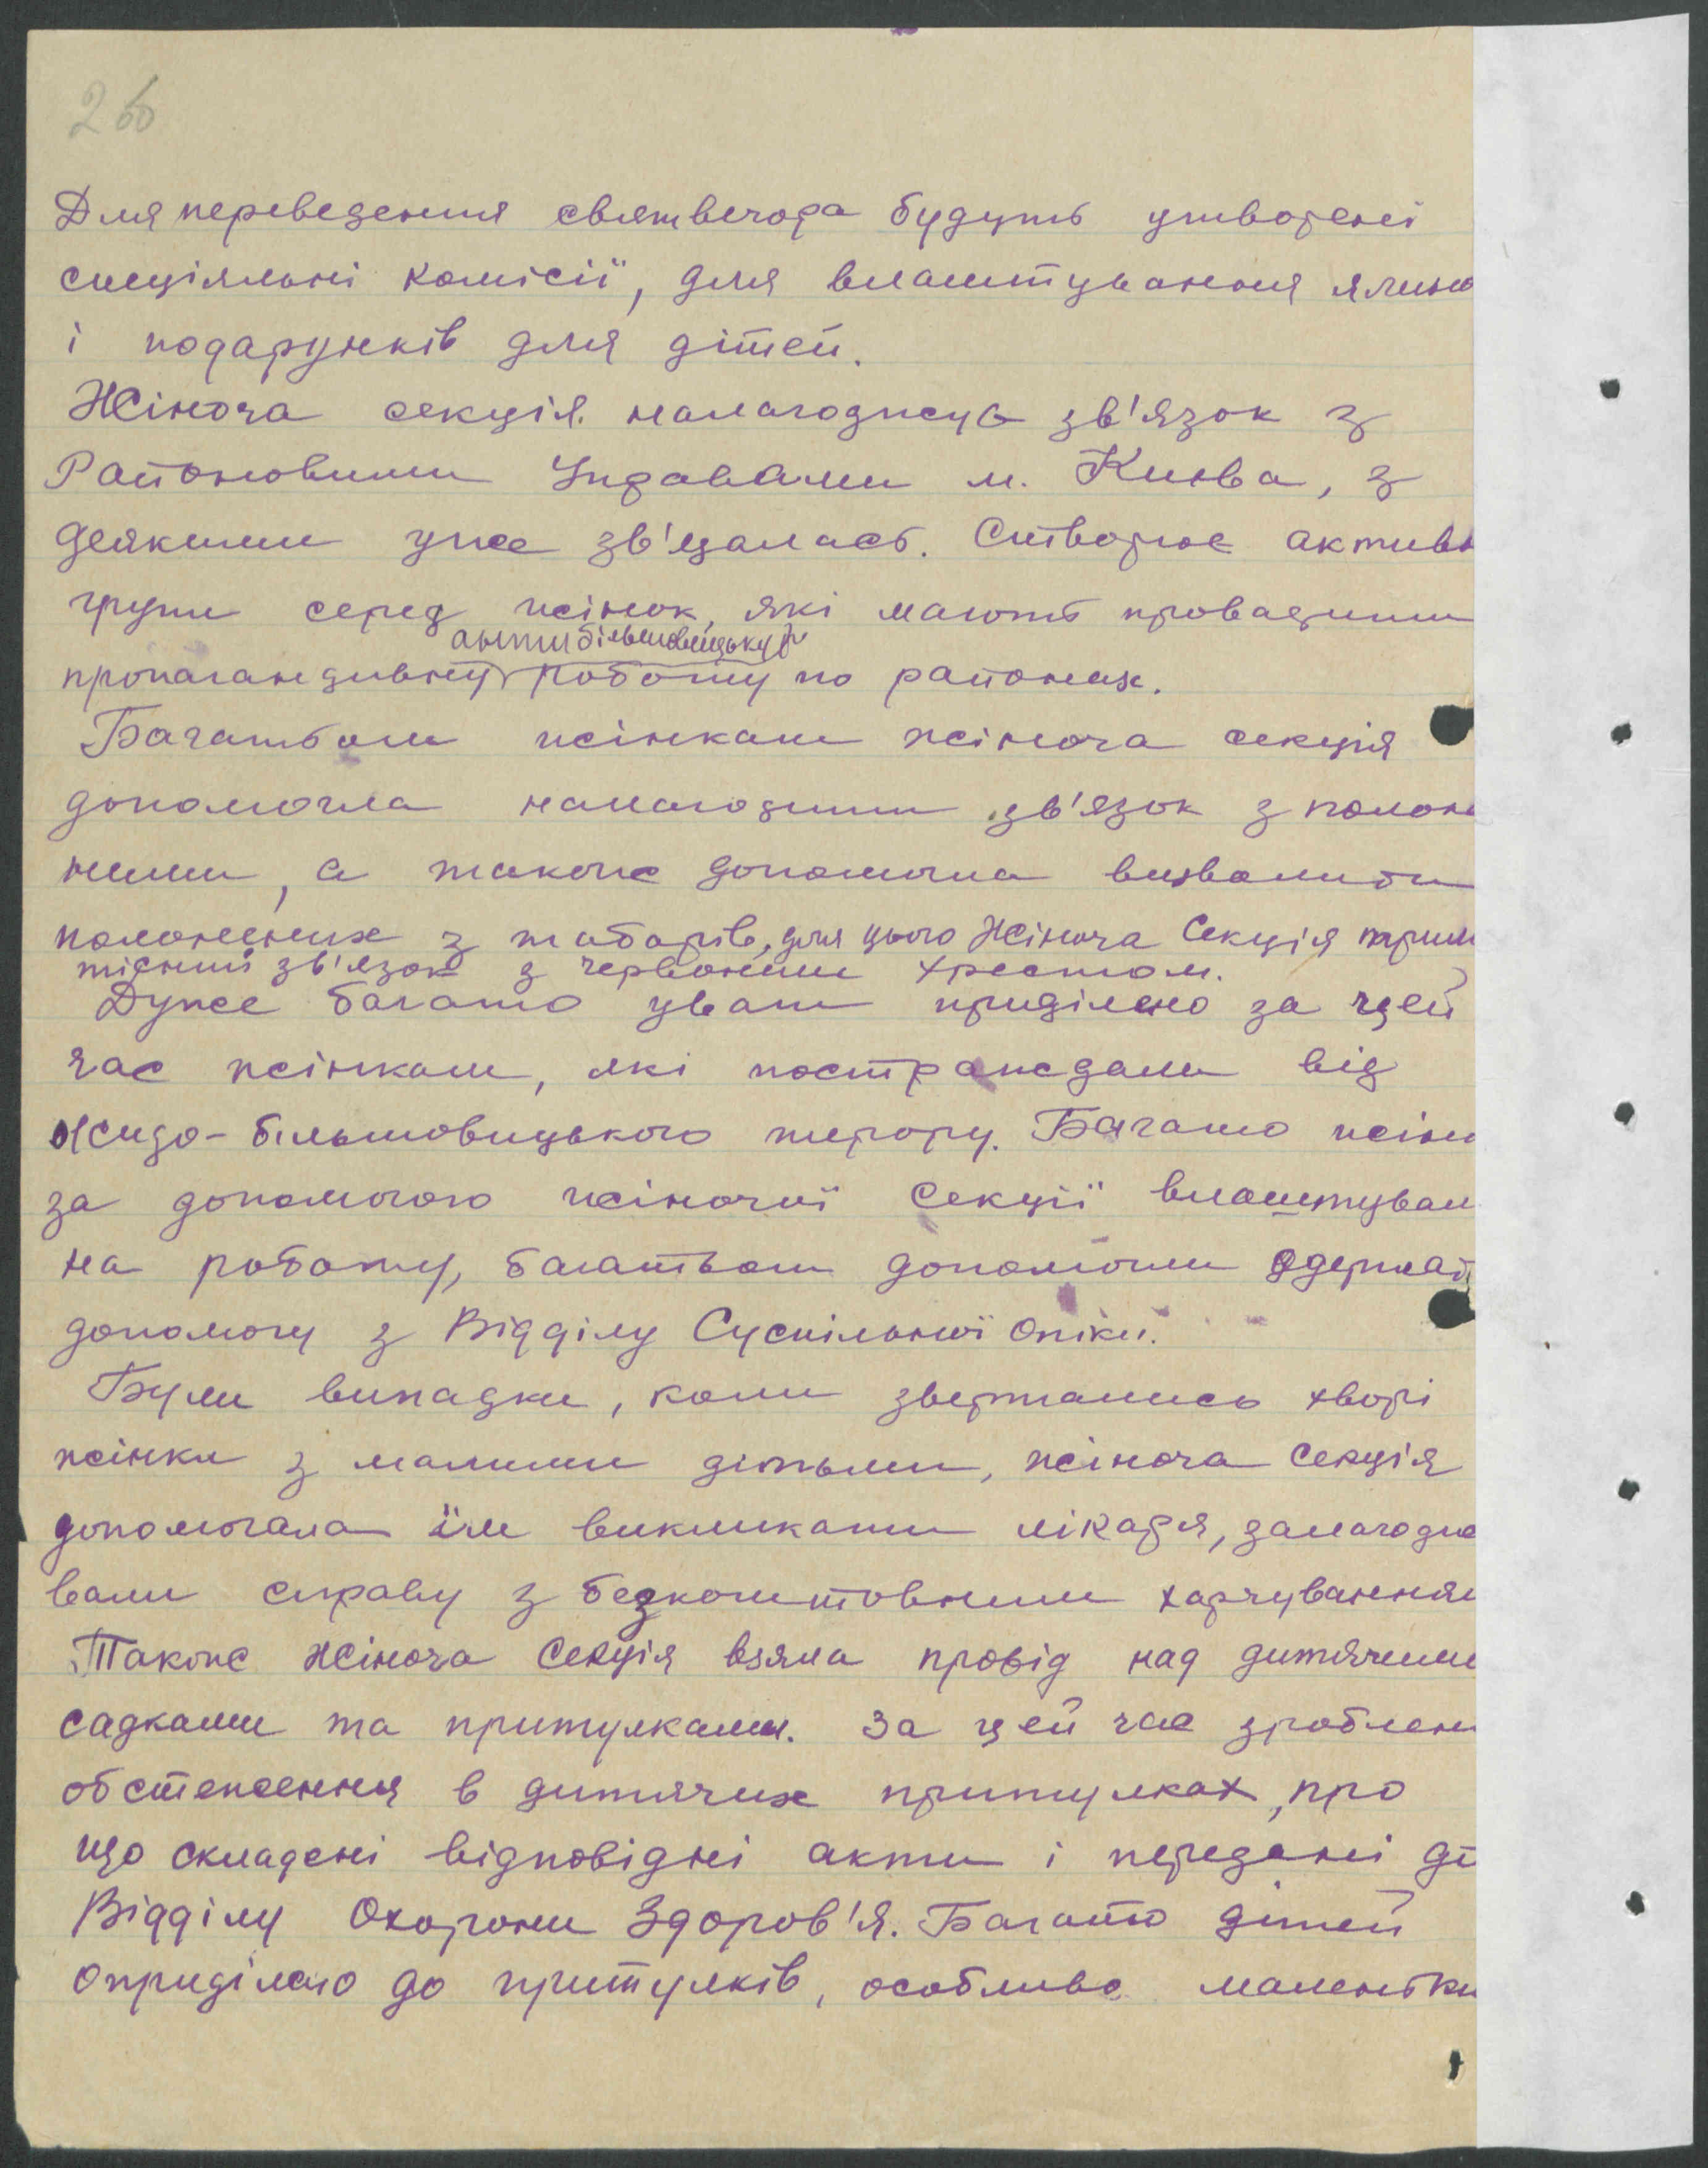 26
Для переведення святвечора будуть утворені
спеціяльні комісії, для влаштування ялино
і подарунків для дітей.
Жіноча секція налагоджує зв'язок з
Районовими Управами м. Києва, з
деякими уже зв'язалась. Створює активн
групи серед жінок, які мають провадити
антибільшовицьку
пропагандивну роботу по районах.
Багатьом жінкам жіноча секція
допомогла налагодити зв'язок з полоне
ними, а також допомогла визволити
полонених з таборів, для цього Жіноча Секція трим
тісний зв'язок з червоним хрестом.
Дуже багато уваги приділено за цей
час жінкам, які постраждали від
жидо-більшовицького терору. Багато жіно
за допомогою жіночої секції влаштували
на роботу, багатьом допомогли одержат
допомогу з Відділу Суспільної Опіки.
Були випадки, коли звертались хворі
жінки з малими дітьми, жіноча секція
допомогала їм викликати лікаря, залагоджу
вали справу з безкоштовним харчуванням
Також жіноча секція взяла провід над дитячими
садками та притулками. За цей час зроблені
обстеження в дитячих притулках, про
що складені відповідні акти і передані до
Відділу Охорони Здоров'я. Багато дітей
оприділено до притулків, особливо маленьки